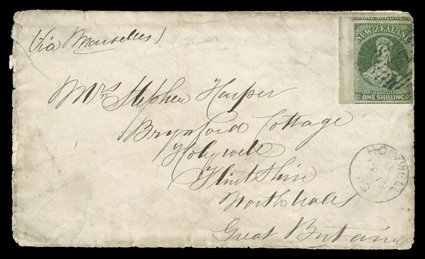 (via Marseilles)
NEW ZEALAND
POSTAGE
ONE SHILLING
Mrs Stephen Harper
Brynford Cottage
Holywell
Flintshire
North Wales
Great Britain